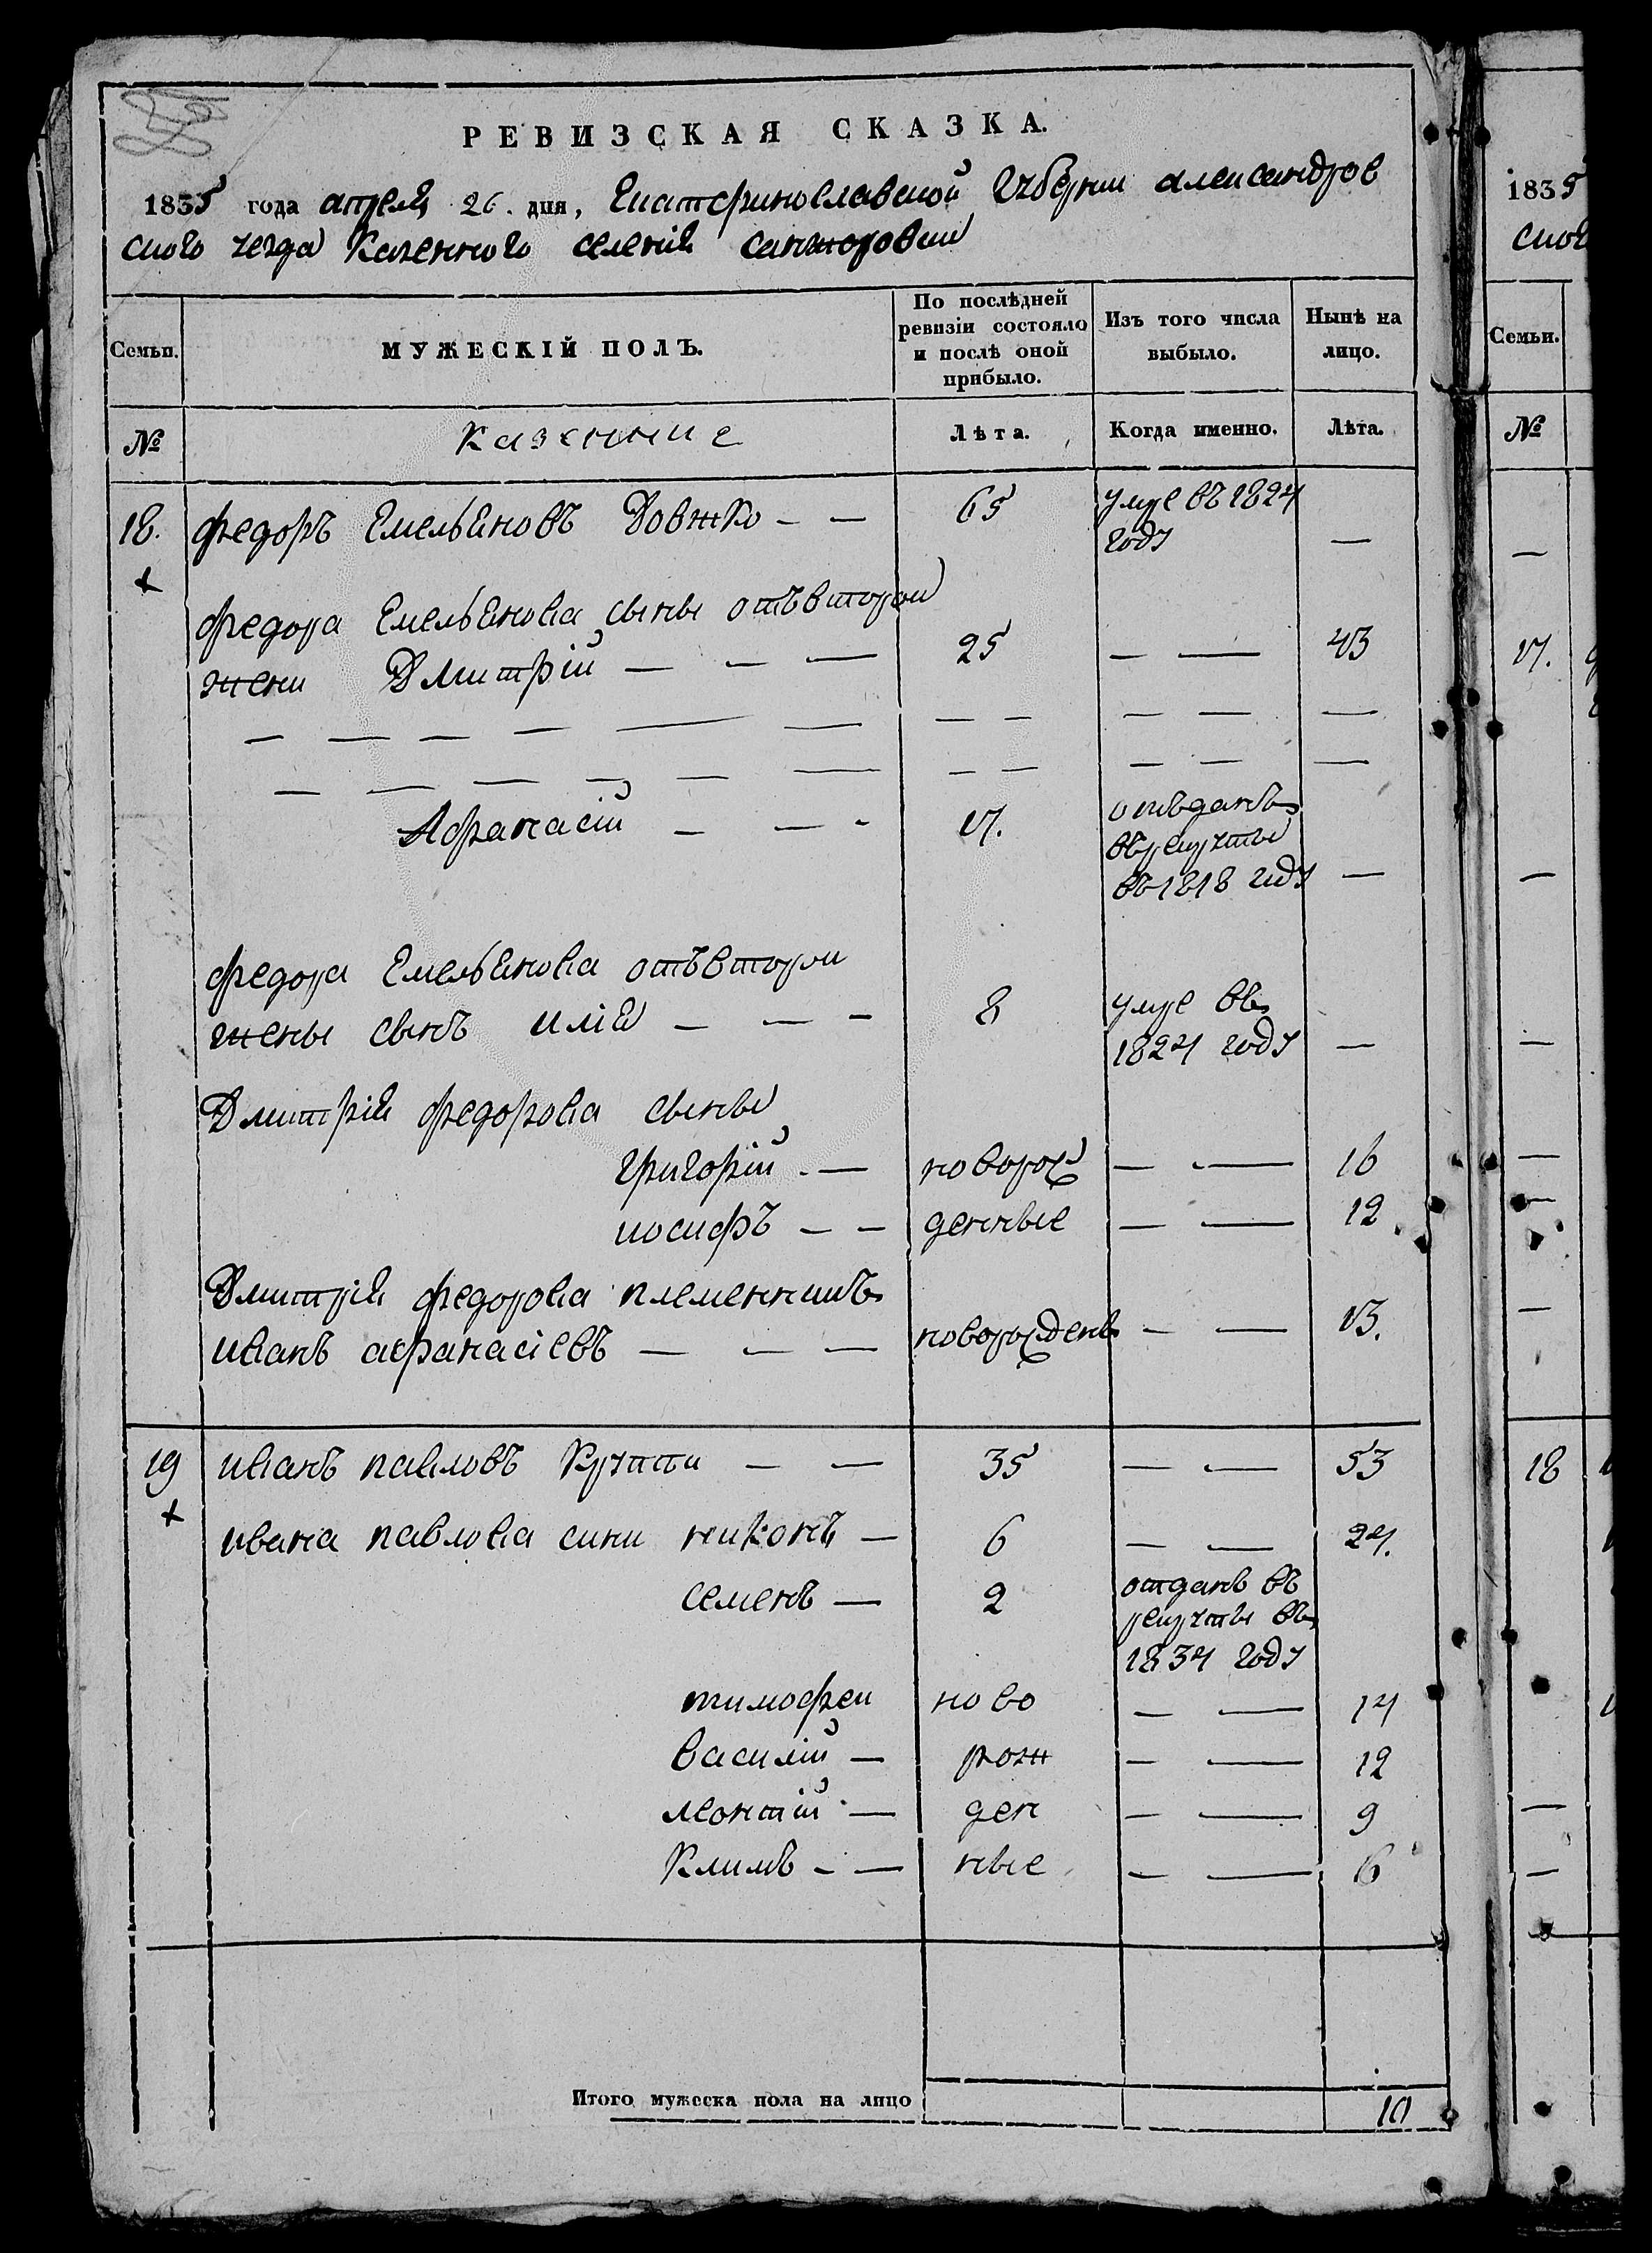 РЕВИЗСКАЯ СКАЗКА.
1835 года апреля 26. дня, Екатеринославской Губернии александров
ского уезда Казенного селения санжаровки
Семьи.
МУЖЕСКІЙ ПОЛЪ.
По послѣдней ревизіи состояло и послѣ оной прибыло.
Изъ того числа выбыло.
Нынѣ на лицо.
№
Казенние
Лѣта.
Когда именно.
Лѣта.
18. федоръ Емельяновъ Довжко — — 65 умре въ 1824
году —
федора Емельянова сыны отъ второи
жени Дмитрій — — — 25 — — 43
Афанасій — — - 17. отъданъ
въ рекруты
въ 1818 году —
федора Емельянова отъ второи
жены сынъ илія — — — 8 умре въ
1824 году —
Дмитрія федорова сыны
григорій - — новорож — — 16
иосифъ — — денные — — 12
Дмитрія федорова племенникъ
иванъ афанасіевъ — — — новорожденъ — — 13.
19 иванъ павловъ — — 35 — — 53
ивана павлова сини никонъ — 6 — — 24.
семенъ — 2 отданъ въ
рекруты въ
1834 году
тимофеи ново — — 14
василій — рож — — 12
леонтій — ден — — 9
Климъ - — ные — — 6
Итого мужеска пола на лицо 10
1835
ског
Семьи.
№
17.
18